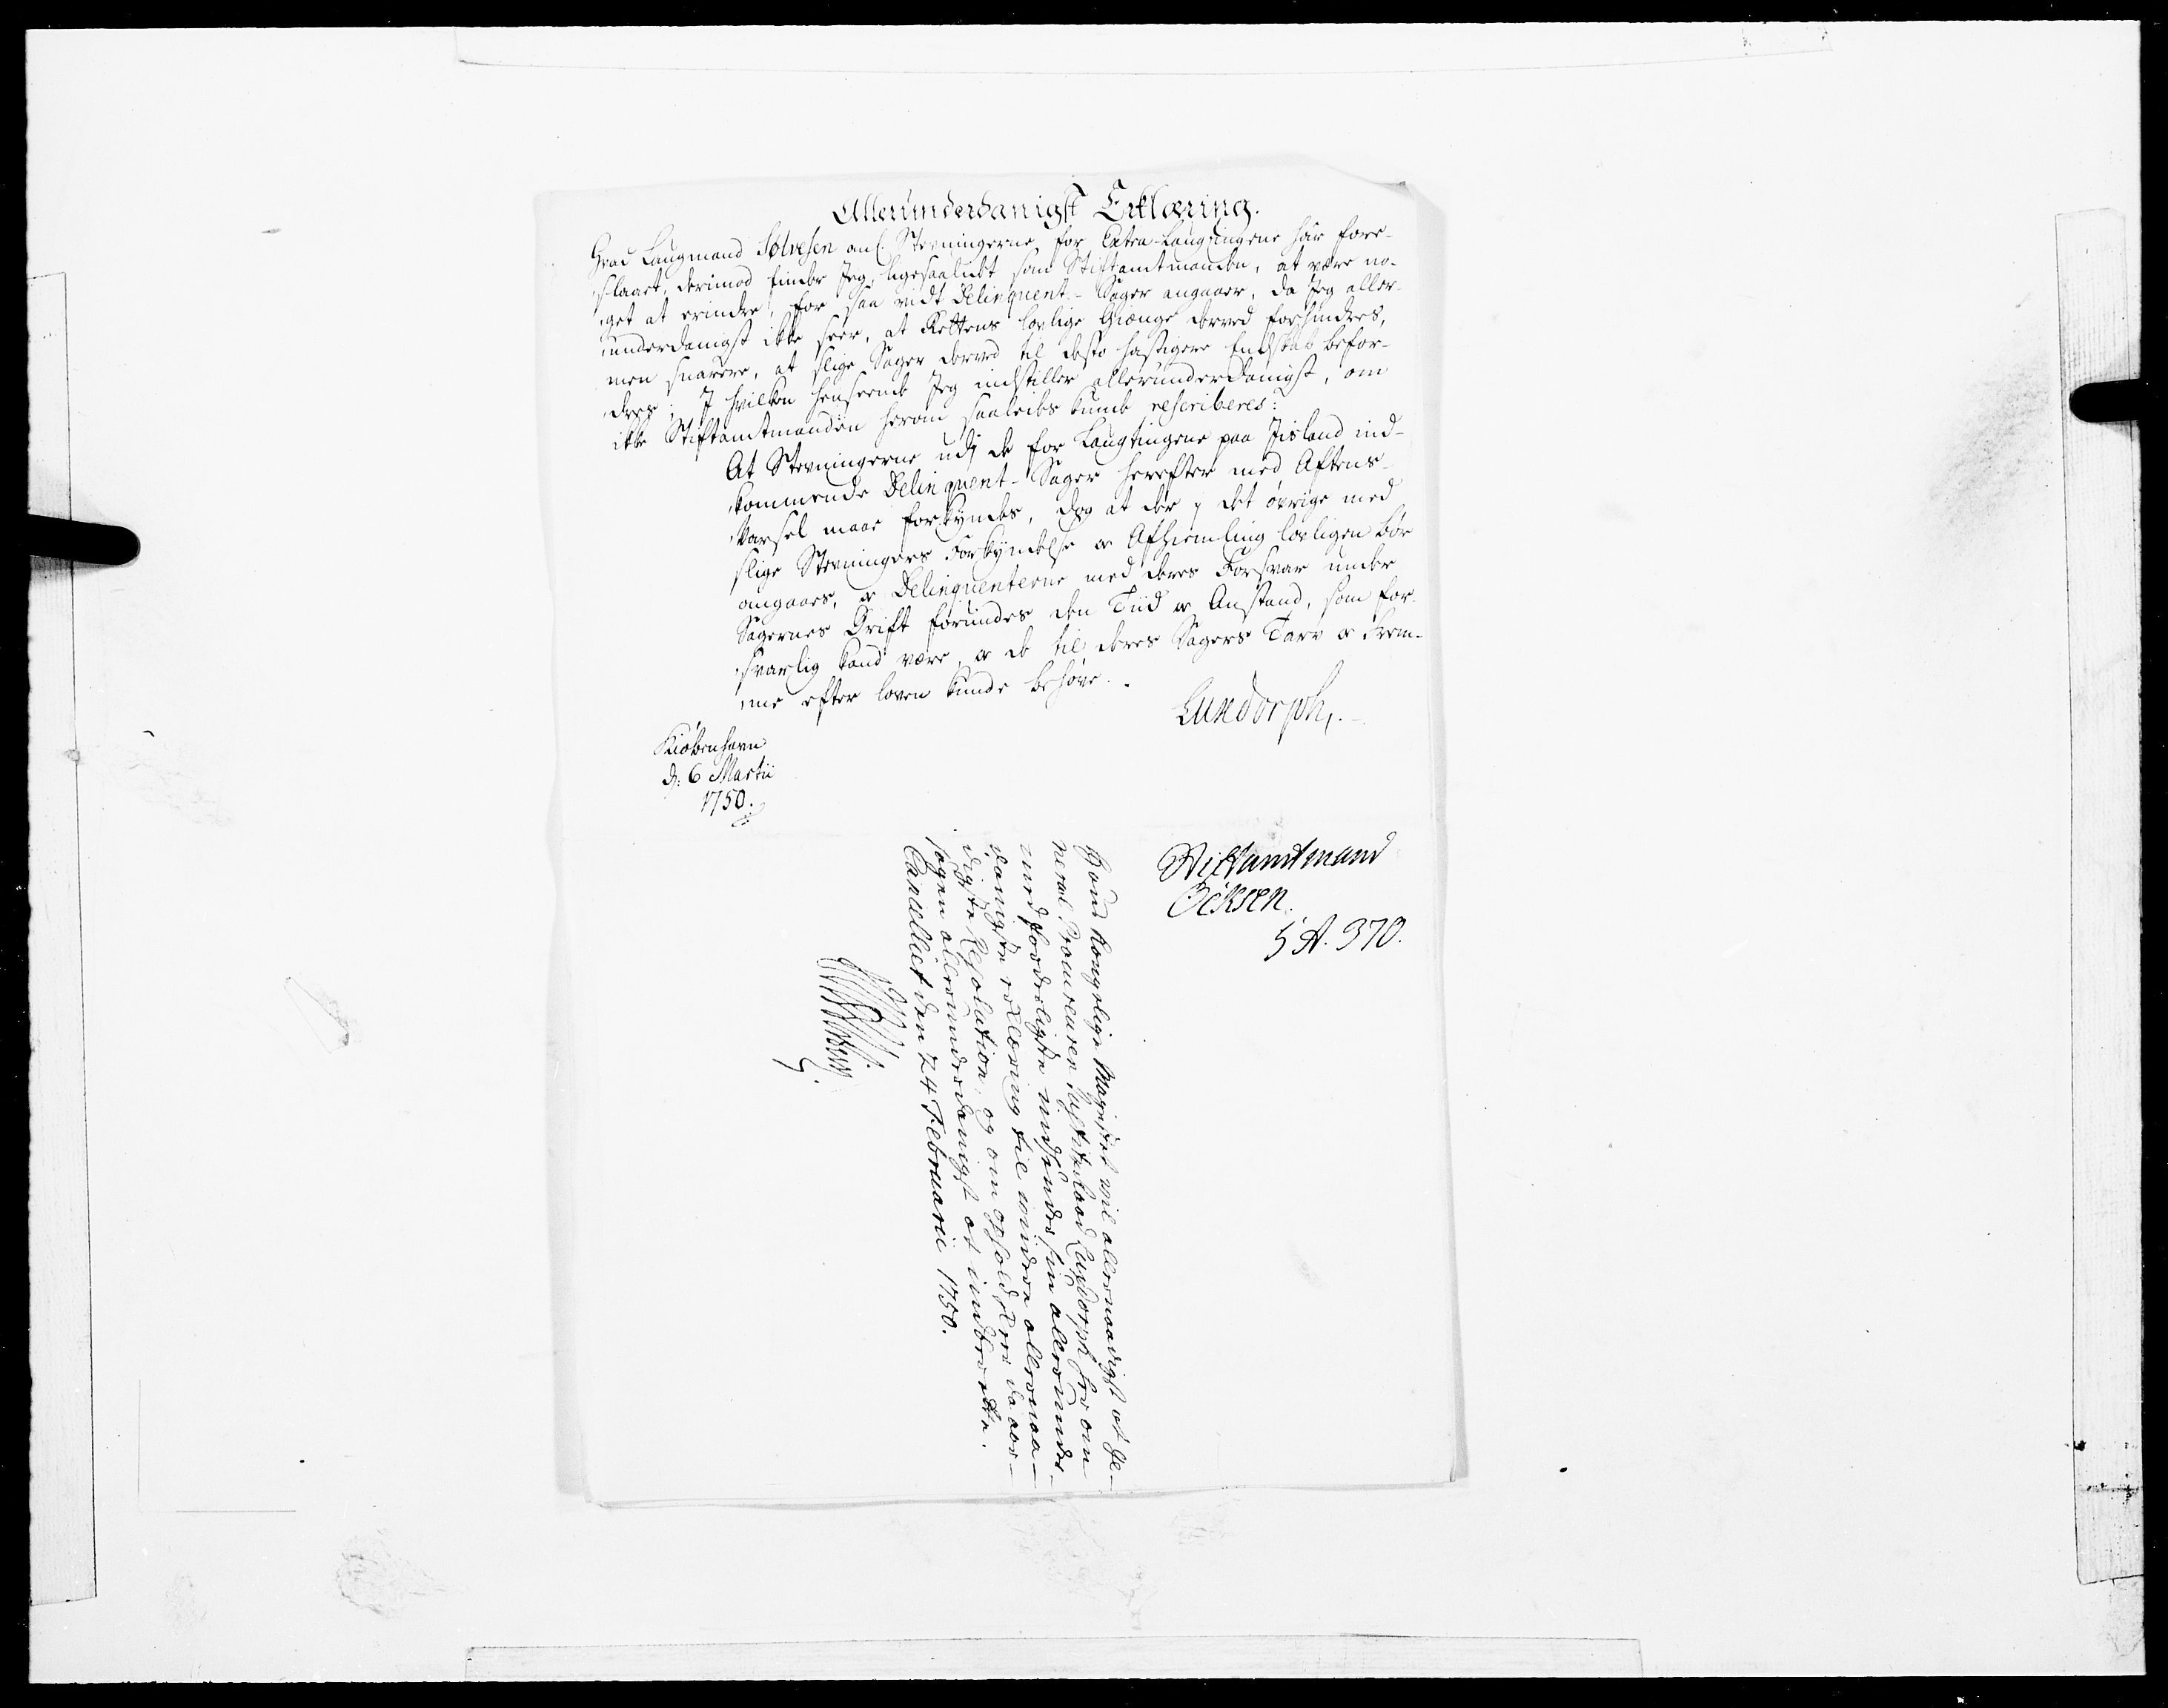 Allerunderdanigst Erklæring.
Hvad Laugmand Sølvesen anl. Stevningerne for Extra-Laugtingene har fore-
slaaet, derimod finder Jeg, ligesaalidt som Stiftamtmanden, at være no-
get at erindre, for saa vidt Delinquent-Sager angaaer, da Jeg aller-
underdanigst ikke seer, at Rettens lovlige Gienge derved forhindres,
men snarere, at slige Sager derved til desto hastigere Endskab befor-
dres; I hvilken henseende Jeg indstiller allerunderdanigst, om
ikke Stiftamtmanden herom saaledes kunde rescriberes:
At Stevningerne udj de for Laugtingene paa Jisland ind-
kommende Delinquent-Sager herefter med Aftens-
Varsel maae forkyndes, dog at der j det øvrige med
slige Stevningers Forkyndelse og Afhiemling lovligen bør
omgaaes, og Delinquenterne med deres Forsvar under
Sagernes Drift forundes den Tiid og Anstand, som for-
svarlig kand være, og de til deres Sagers Tarv og Frem-
me efter loven kunde behøve.
Luxdorph.
Kiøbenhavn
d: 6 Martii
1750.
Stiftamtmand
Ocksen.
5 A. 370.
Hans Kongelige Mayestet vil allernaadigst at Ge-
neral Procureuren Justitz Raad Luxdorph her om
med forderligste indsender sin allerunder-
danigste erklæring til videre allernaa-
digste Resolution, og om ophold skeer da aar-
sagen allerunderdanigst at indberette.
Cancelliet den 24 Februarii 1750.